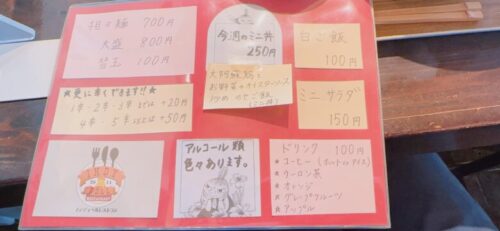 担々麺 700円
大盛 800円
替玉 100円
今週のミニ丼
250円
白ご飯
100円
大阿蘇鶏と
お野菜のオイスターソース
炒めのせご飯
(ミニ丼)
ミニサラダ
150円
★更に辛くできます!!★
1辛・2辛・3辛までは +20円
4辛・5辛までは +50円
アルコール類
色々あります。
ドリンク 100円
★コーヒー(ホットorアイス)
★ウーロン茶
★オレンジ
★グレープフルーツ
★アップル